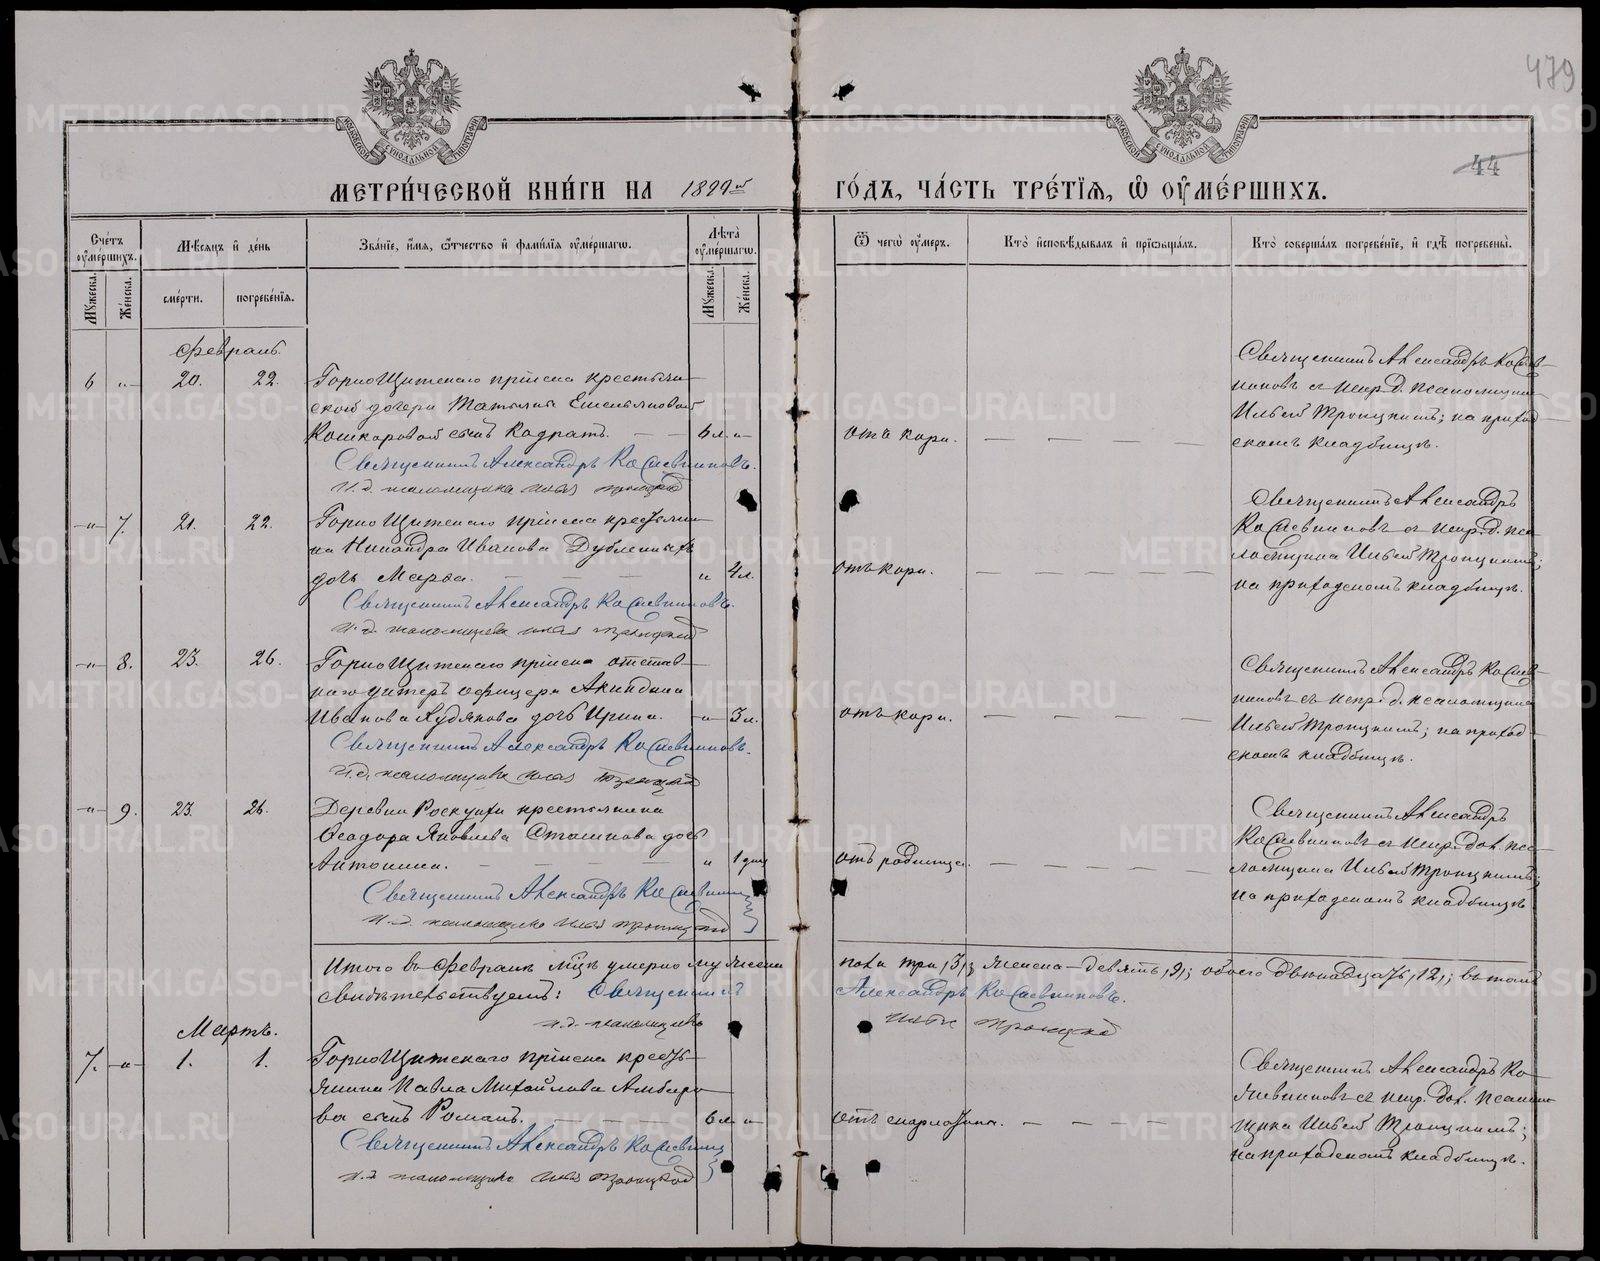 479
44
МЕТРИ́ЧЕСКОЙ КНИ́ГИ НА 1899й ГО́ДЪ, ЧА́СТЬ ТРЕ́ТІѦ, Ѽ ОУМЕ́РШИХЪ.
Счетъ оумершихъ.
Мѣсяцъ и день
Званіе, имя, отчество и фамилія оумершагѡ.
Лѣта оумершагѡ.
Ѿ чегѡ оумеръ.
Кто исповѣдывалъ и пріобщалъ.
Кто совершалъ погребеніе, и гдѣ погребены.
Мужеска.
Женска.
смерти.
погребенія.
Мужеска.
Женска.
Февраль.
6 -"- 20. 22. Горно Щитскаго пріиска крестьян-
ской дочери Татьяны Емельяновой
Кошкаровой сынъ Кодратъ. 6 л. -"- отъ кори.
Священникъ Александръ Кожевниковъ.
И. д. псаломщика Илья Троицкій
Священникъ Александръ Кожев-
никовъ съ испр. д. псаломщика
Ильей Троицкимъ; на приход-
скомъ кладбищѣ.
-"- 7. 21. 22. Горно Щитскаго пріиска крестьяни-
на Никандра Иванова Дубленныхъ
дочь Марѳа. " 4 л. отъ кори.
Священникъ Александръ Кожевниковъ.
И. д. псаломщика Илья Троицкій
Священникъ Александръ
Кожевниковъ съ испр. д. пса-
ломщика Ильей Троицкимъ;
на приходскомъ кладбищѣ.
-"- 8. 23. 26. Горно Щитскаго пріиска отстав-
наго унтеръ офицера Акиндина
Иванова Худякова дочь Ирина. -"- 3 л. отъ кори.
Священникъ Александръ Кожевниковъ.
И. д. псаломщика Илья Троицкій
Священникъ Александръ Кожев-
никовъ съ испр. д. псаломщика
Ильей Троицкимъ; на приход-
скомъ кладбищѣ.
-"- 9. 23. 26. Деревни Роскуихи крестьянина
Ѳеодора Яковлева дочь
Антонина. " 1 дня отъ родимца.
Священникъ Александръ Кожевник
И. д. псаломщика Илья Троицкій
Священникъ Александръ
Кожевниковъ съ испр. дол. пса-
ломщика Ильей Троицкимъ;
на приходскомъ кладбищѣ
Итого въ Февралѣ м-цѣ умерло мужеска пола три, 3, женска – девять, 9,; обоего двѣнадцать, 12,; въ томъ
свидѣтельствуемъ: Священникъ Александръ Кожевниковъ.
и. д. псаломщика Илья Троицкій
Мартъ.
7. -"- 1. 1. Горно Щитскаго пріиска кресть-
янина Павла Михайлова Амбаро-
ва сынъ Романъ. 6 л. -"- отъ скарлатины.
Священникъ Александръ Кожевник
И. д. псаломщика Илья Троицкій
Священникъ Александръ Ко-
жевниковъ съ испр. дол. псалом-
щика Ильей Троицкимъ;
на приходскомъ кладбищѣ.
METRIKI.GASO-URAL.RU